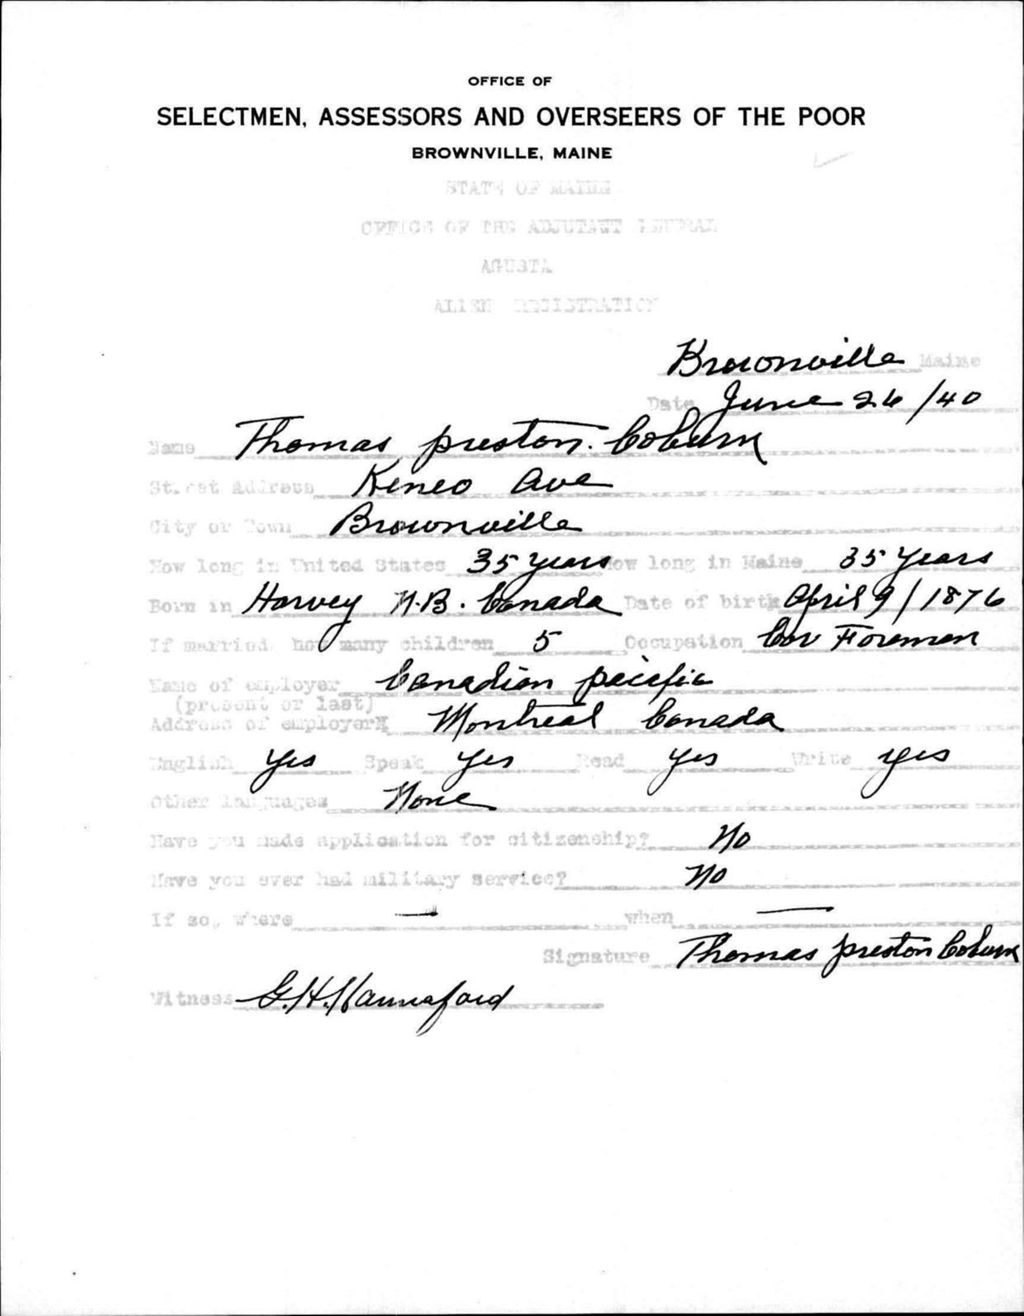 OFFICE OF
SELECTMEN, ASSESSORS AND OVERSEERS OF THE POOR
BROWNVILLE, MAINE
STATE OF MAINE
OFFICE OF THE ADJUTANT GENERAL
AGUSTA
ALIEN REGISTRATION
Brownville Maine
Date June 26/40
Name Thomas preston. Coburn
Street Address Keneo Ave
City or Town Brownville
How long in United States 35 years How long in Maine 35 Years
Born in Harvey N.B. Canada Date of birth April 9/1876
If married, how many children 5 Occupation Car Foreman
Name of employer Canadian pacific
(present or last)
Address of employer Montreal Canada
English Yes Speak Yes Read Yes Write yes
Other languages None
Have you made application for citizenship? No
Have you ever had military service? No
If so, where — when —
Signature Thomas preston Coburn
Witness G.H. Hannaford